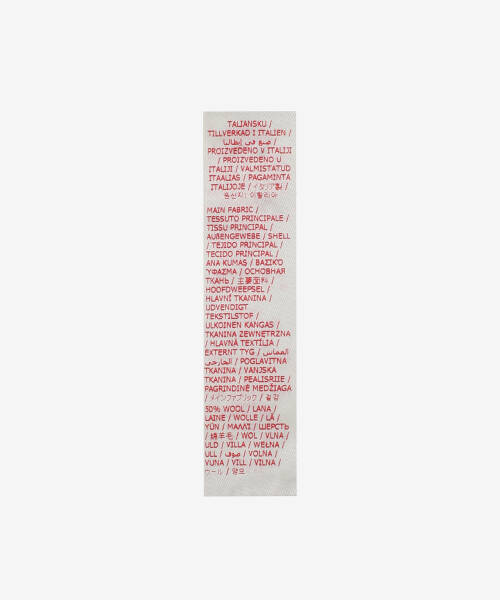 TALIANSKU /
TILLVERKAD I ITALIEN /
صنع في إيطاليا /
PROIZVEDENO V ITALIJI
/ PROIZVEDENO U
ITALIJI / VALMISTATUD
ITAALIAS / PAGAMINTA
ITALIJOJE / イタリア製 /
원산지: 이탈리아
MAIN FABRIC /
TESSUTO PRINCIPALE /
TISSU PRINCIPAL /
AUßENGEWEBE / SHELL
/ TEJIDO PRINCIPAL /
TECIDO PRINCIPAL /
ANA KUMAS / ΒΑΣΙΚΌ
ΎΦΑΣΜΑ / ОСНОВНАЯ
ТКАНЬ / 主要面料 /
HOOFDWEEFSEL /
HLAVNÍ TKANINA /
UDVENDIGT
TEKSTILSTOF /
ULKOINEN KANGAS /
TKANINA ZEWNĘTRZNA
/ HLAVNÁ TEXTÍLIA /
EXTERNT TYG / القماش
الخارجي / POGLAVITNA
TKANINA / VANJSKA
TKANINA / PEALISRIIE /
PAGRINDINĖ MEDŽIAGA
/ メインファブリック / 겉감
50% WOOL / LANA /
LAINE / WOLLE / LÃ /
YÜN / ΜΑΛΛΊ / ШЕРСТЬ
/ 绵羊毛 / WOL / VLNA /
ULD / VILLA / WEŁNA /
ULL / صوف / VOLNA /
VUNA / VILL / VILNA /
ウール / 양모